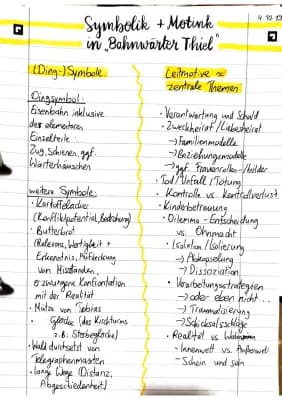 4.10.
Symbolik + Motivik
in „Bahnwärter Thiel"
(Ding-)Symbole
Dingsymbol:
Eisenbahn inklusive
der elementaren
Einzelteile:
Zug, Schienen, ggf.
Wärterhäuschen
weitere Symbole:
• Kartoffelacker
(Konfliktpotential, Bedrohung)
• Butterbrot
(Relevanz, Wertigkeit +
Erkenntnis, Aufdeckung
von Missständen,
erzwungene Konfrontation
mit der Realität
• Mütze von Tobias
• Glocke (des Kirchturms
z.B. Sterbeglocke)
• Wald durchsetzt von
Telegraphenmasten
• lange Wege (Distanz,
Abgeschiedenheit)
Leitmotive ≈
zentrale Themen
• Verantwortung und Schuld
• Zweckheirat / Liebesheirat
→ Familienmodelle
→ Beziehungsmodelle
→ ggf. Frauenrollen-/bilder
• Tod / Unfall / Tötung
• Kontrolle vs. Kontrollverlust
• Kinderbetreuung
• Dilemma - Entscheidung
vs. Ohnmacht
• Isolation / Isolierung
→ Abkapselung
→ Dissoziation
• Verarbeitungsstrategien
→ oder eben nicht...
→ Traumatisierung
→ Schicksalsschläge
• Realität vs. Wahnsinn
- Innenwelt vs. Außenwelt
- Schein und Sein